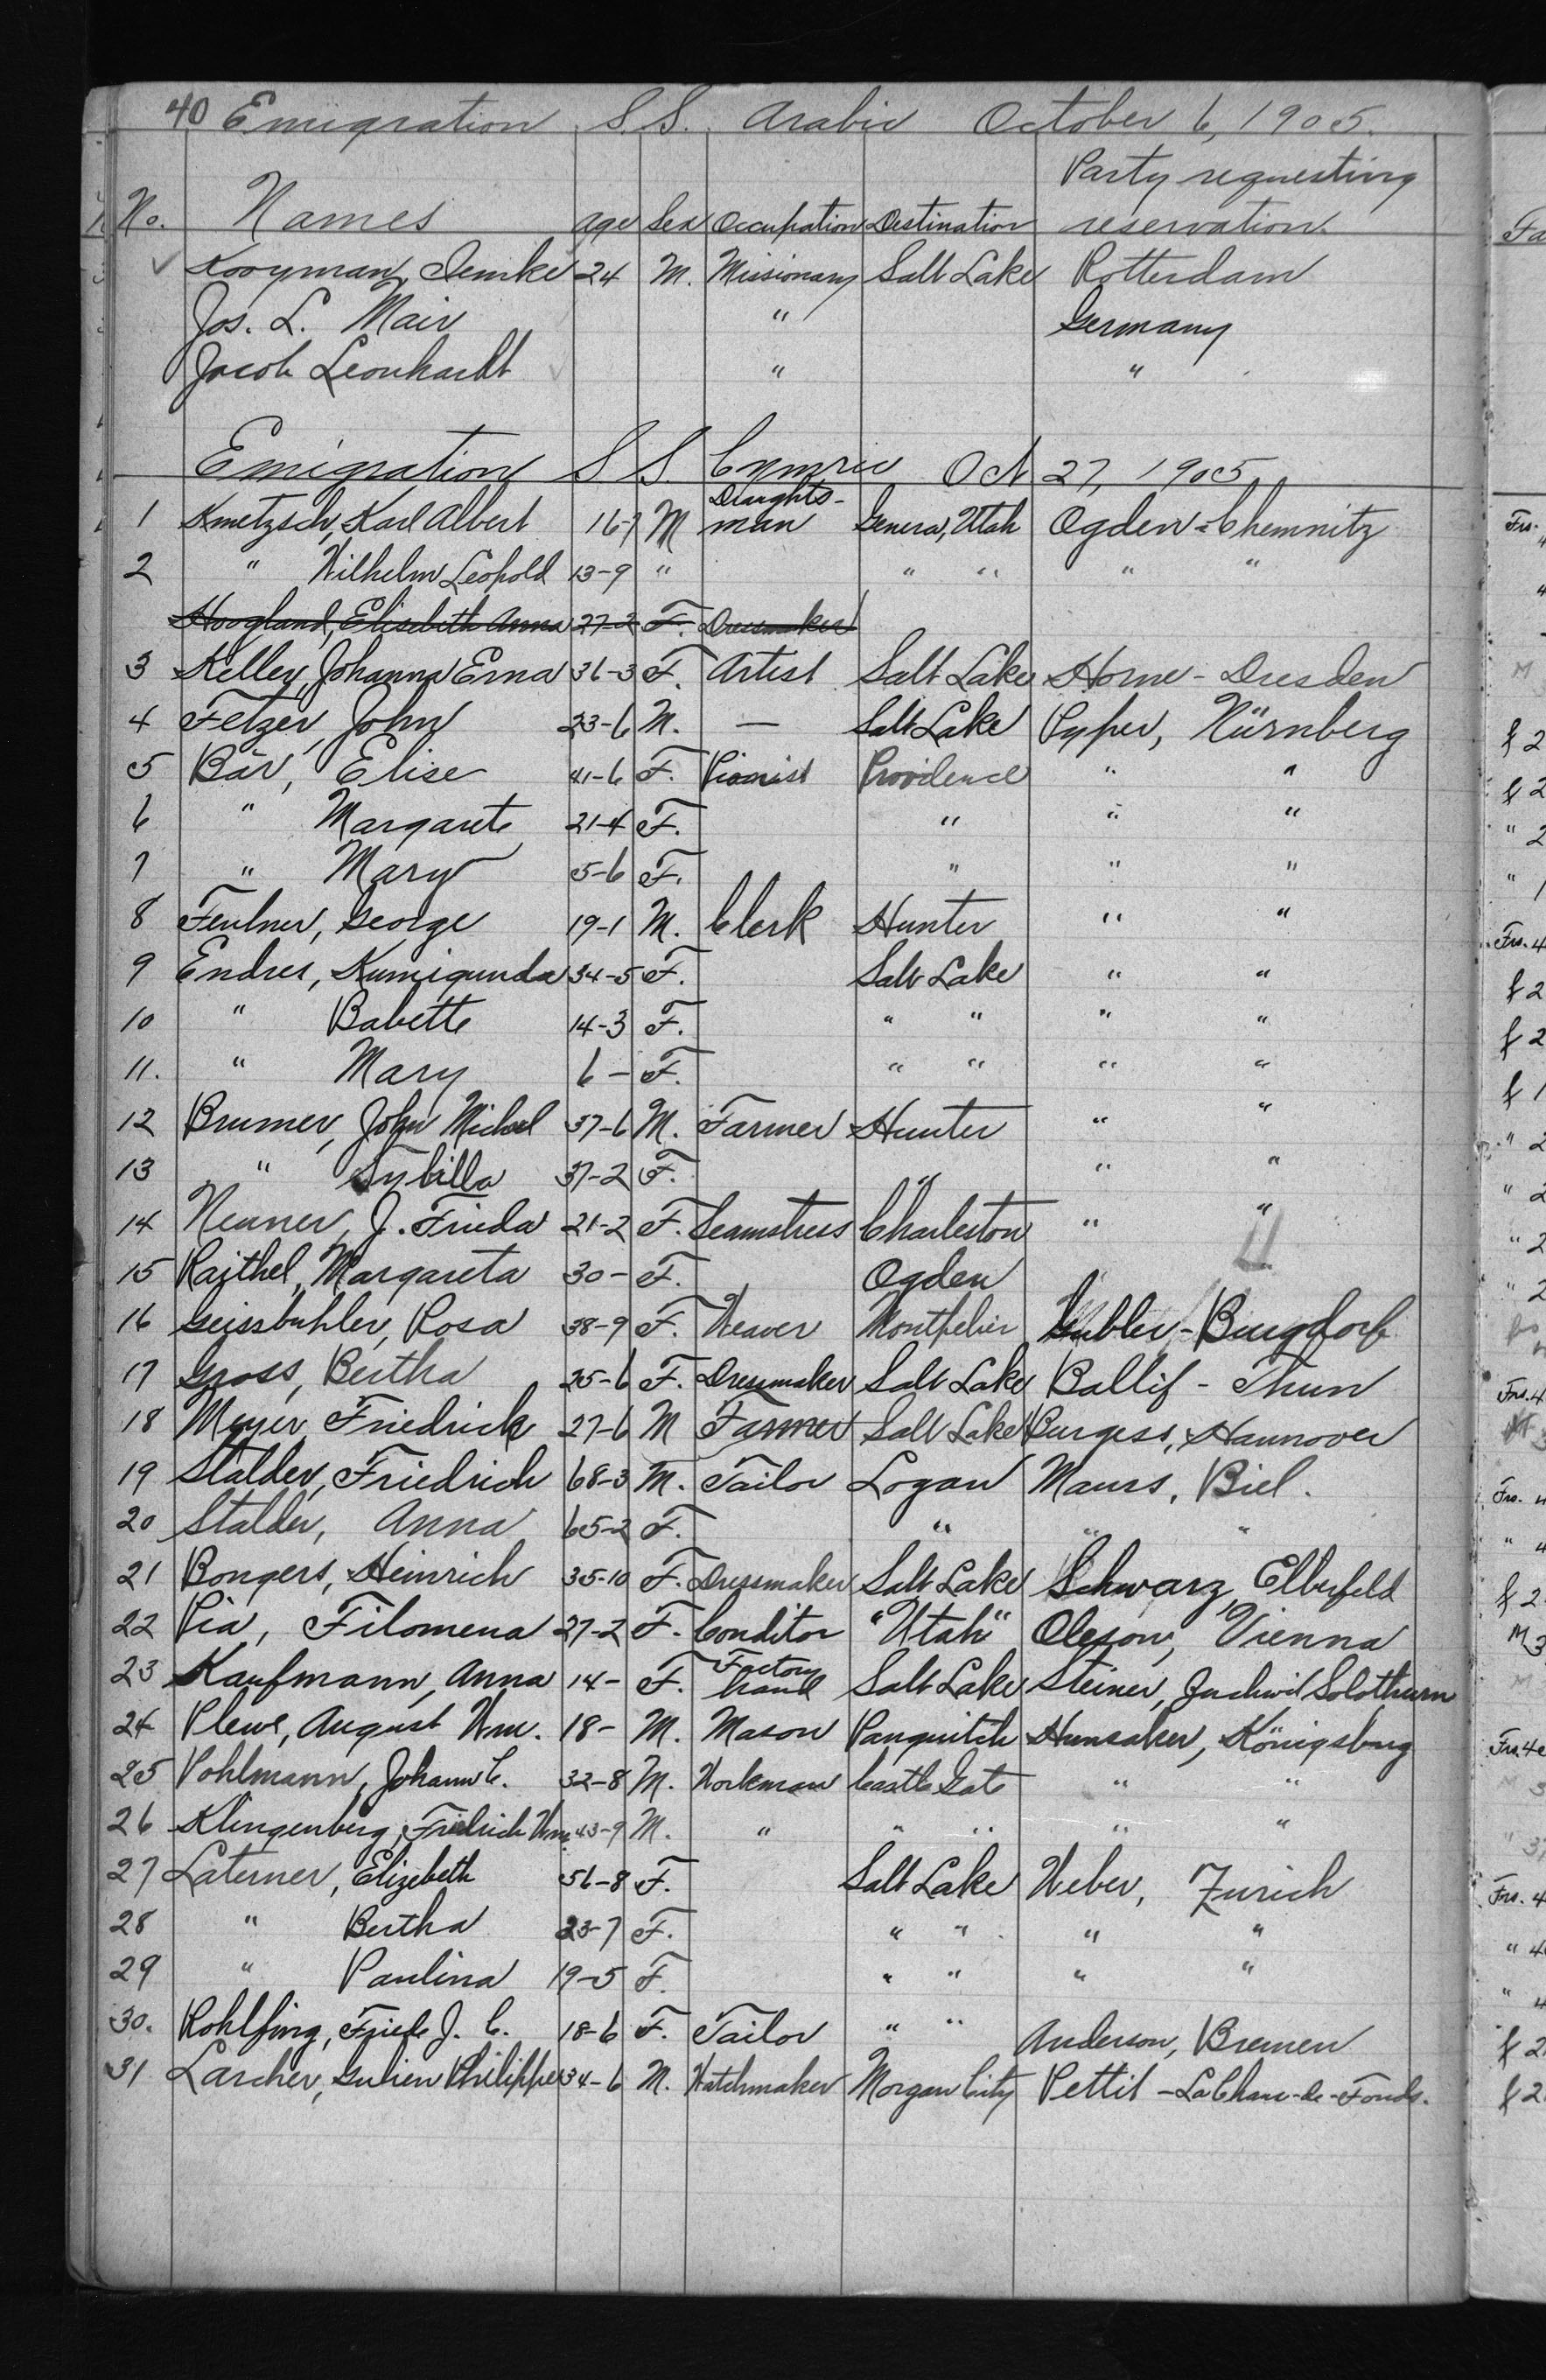 40 Emigration S.S. Arabic October 6, 1905.
Party requesting
No. Names age Sex Occupation Destination reservation.
Kooyman, Demke 24 M. Missionary Salt Lake Rotterdam
Jos. L. Mair " Germany
Jacob Leonhardt " "
Emigration S S. Cymric Oct 27, 1905
Draughts-
1 Kmetzsch, Karl Albert 16-7 M man Geneva, Utah Ogden - Chemnitz
2 " Wilhelm Leopold 13-9 " " " " "
Hoogland, Elisebeth Anna 27-2 F. Dressmaker
3 Kelley, Johanna Erna 36-3 F. Artist Salt Lake Horne - Dresden
4 Fetzer, John 23-6 M. — Salt Lake Pyper, Nürnberg
5 Bär, Elise 41-6 F. Pianist Providence " "
6 " Margarete 21-4 F. " " "
7 " Mary 5-6 F. " " "
8 Feulner, George 19-1 M. Clerk Hunter " "
9 Endres, Kumigunda 34-5 F. Salt Lake " "
10 " Babette 14-3 F. " " " "
11. " Mary 6 - F. " " " "
12 Brumer, John Michael 37-6 M. Farmer Hunter " "
13 " Sybilla 37-2 F. " " "
14 Neuner, J. Frieda 21-2 F. Seamstress Charleston " "
15 Raithel, Margareta 30 - F. Ogden
16 Geissbuhler, Rosa 38-9 F. Weaver Montpelier Gubler - Burgdorf
17 Gross, Bertha 25-6 F. Dressmaker Salt Lake Ballif - Thun
18 Meyer, Friedrick 27-6 M Farmer Salt Lake Burgess, Hannover
19 Stalder, Friedrich 68-3 M. Tailor Logan Maurs, Biel.
20 Stalder, Anna 65-2 F. " " "
21 Bongers, Heinrich 35-10 F. Dressmaker Salt Lake Schwarz, Elberfeld
22 Pia, Filomena 27-2 F. Conditor "Utah" Oleson, Vienna
Factory
23 Kaufmann, Anna 14 - F. hand Salt Lake Steiner, Solothurn
24 Plewe, August Wm. 18 - M. Mason Panguitch Hunsaker, Königsburg
25 Pohlmann, Johann C. 32-8 M. Workman Castle Gate " "
26 Klingenberg, Fridrich Wm. 43-9 M. " " " " "
27 Laterner, Elizebeth 56-8 F. Salt Lake Weber, Zurich
28 " Bertha 23-7 F. " " " "
29 " Paulina 19-5 F. " " " "
30. Rohlfing, Friede J. C. 18-6 F. Tailor " " Anderson, Bremen
31 Larcher, Gulien Philippe 34-6 M. Watchmaker Morgan City Pettit - La Chaux-de-Fonds.